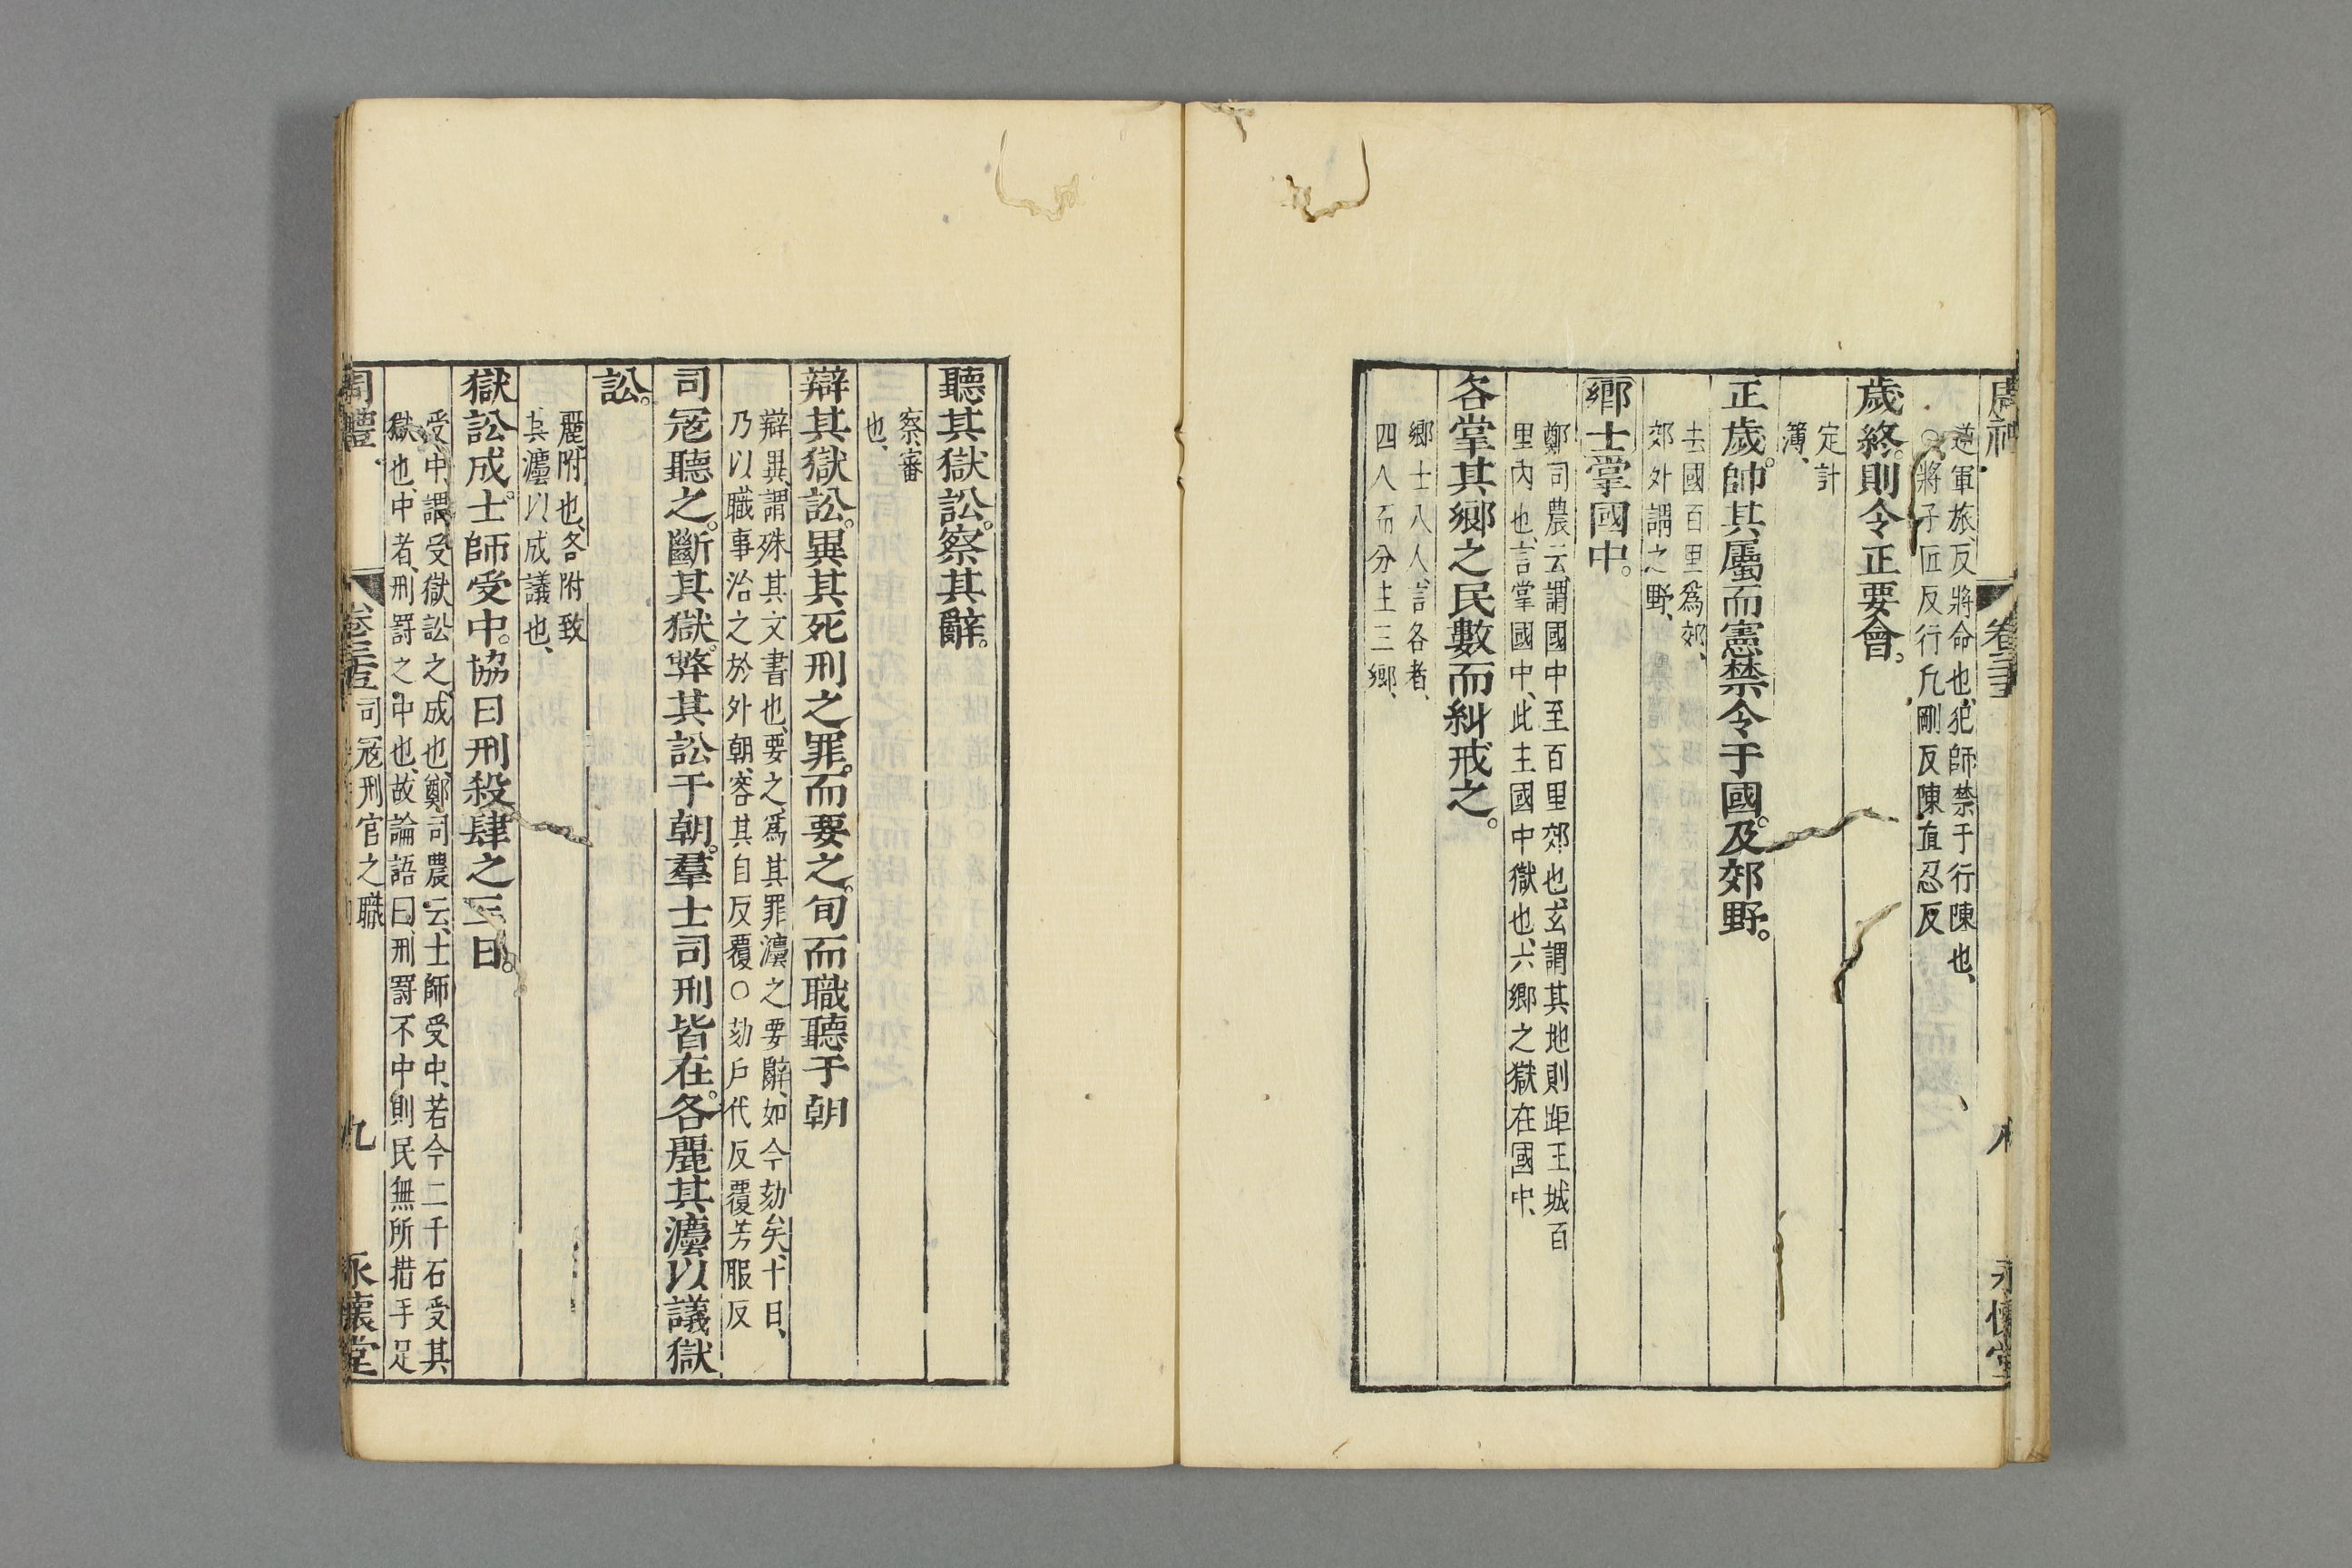 道軍旅、反將命也、犯師禁于行陳也、
○將子匠反行凣剛反陳直忍反
歲終。則令正要會。
定計
簿、
正歲。帥其屬而憲禁令于國。及郊野。
去國百里爲郊、
郊外謂之野、
鄉士掌國中。
鄭司農云、謂國中至百里郊也、玄謂其地則距王城百
里內也、言掌國中、此主國中獄也、六鄉之獄在國中、
各掌其鄉之民數而糾戒之。
鄉士八人、言各者、
四人而分主三鄉、
永懷堂
聽其獄訟。察其辭。
察、審
也、
辯其獄訟。異其死刑之罪。而要之。旬而職聽于朝
辯異、謂殊其文書也、要之、爲其罪灋之要辭、如今劾矣、十日、
乃以職事治之於外朝、容其自反覆○劾戶代反覆芳服反
司寇聽之。斷其獄。弊其訟于朝。羣士司刑皆在。各麗其灋以議獄
訟。
麗、附也、各附致
其灋以成議也、
獄訟成。士師受中。協日刑殺。肆之三日。
受中、謂受獄訟之成也、鄭司農云、士師受中、若今二千石受其
獄也、中者、刑罰之中也、故論語曰、刑罰不中、則民無所措手足
周禮 卷三十五 司寇刑官之職 九 永懷堂